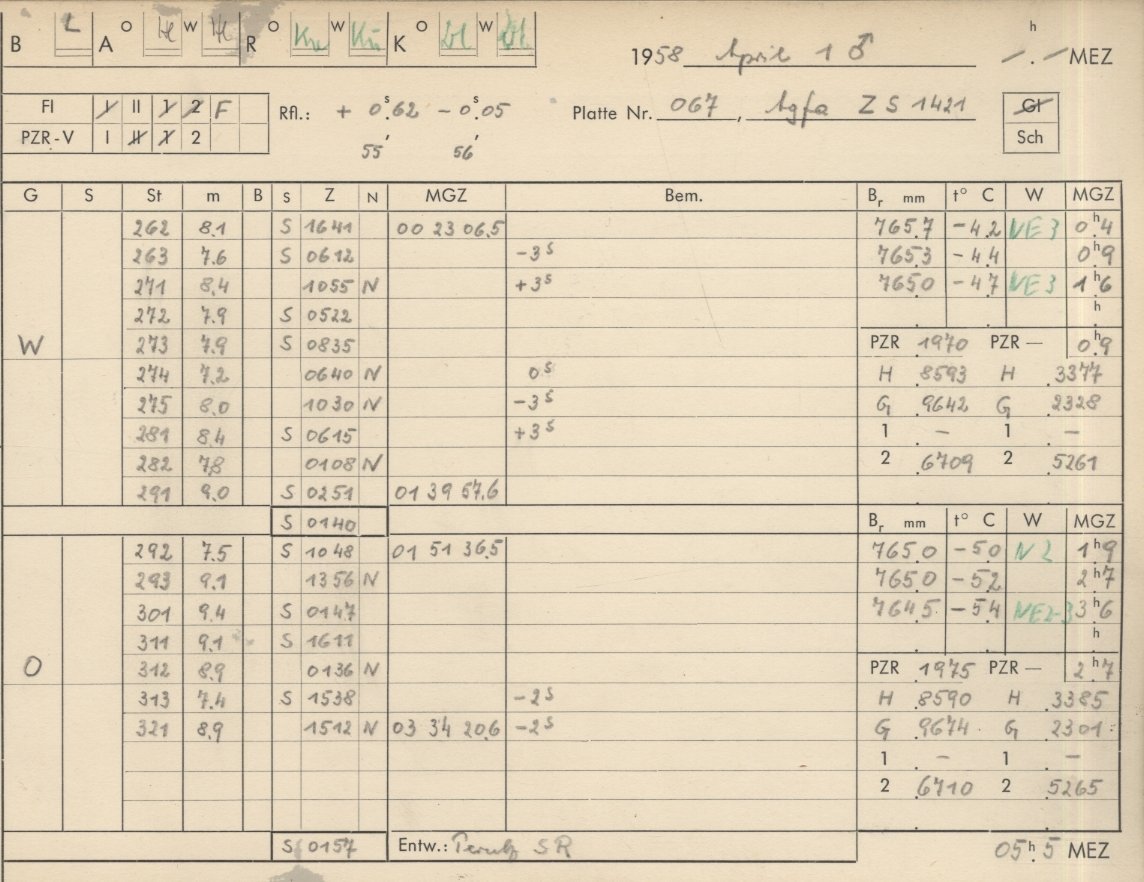 B L A O W R O Kre W Kü K O W
1958 April 1 ♂ h - . - MEZ
FI I II 1 2 F
PZR-V I II 1 2
Rfl.: + 0ˢ.62 - 0ˢ.05
55' 56'
Platte Nr. 067, Agfa Z S 1421
GI
Sch
G S St m B S Z N MGZ Bem. Bᵣ mm t° C W MGZ
262 8.1 S 1641 00 23 06.5 765.7 -4.2 NE 3 0ʰ.4
263 7.6 S 0612 -3ˢ 765.3 -4.4 0ʰ.9
271 8.4 1055 N +3ˢ 765.0 -4.7 NE 3 1ʰ.6
272 7.9 S 0522 h
W 273 7.9 S 0835 PZR .1970 PZR — 0ʰ.9
274 7.2 0640 N 0ˢ H .8593 H .3377
275 8.0 1030 N -3ˢ G .9642 G .2328
281 8.4 S 0615 +3ˢ 1 . - 1 . -
282 7.8 0108 N 2 .6709 2 .5261
291 9.0 S 0251 01 39 57.6
S 0140 Bᵣ mm t° C W MGZ
292 7.5 S 1048 01 51 36.5 765.0 -5.0 N 2 1ʰ.9
293 9.1 1356 N 765.0 -5.2 2ʰ.7
301 9.4 S 0147 764.5 -5.4 NE2-3 3ʰ.6
311 9.1 S 1611 h
O 312 8.9 0136 N PZR .1975 PZR — 2ʰ.7
313 7.4 S 1538 -2ˢ H .8590 H .3385
321 8.9 1512 N 03 34 20.6 -2ˢ G .9674 G .2301
1 . - 1 . -
2 .6710 2 .5265
S 0157 Entw.: Perutz SR 05ʰ.5 MEZ